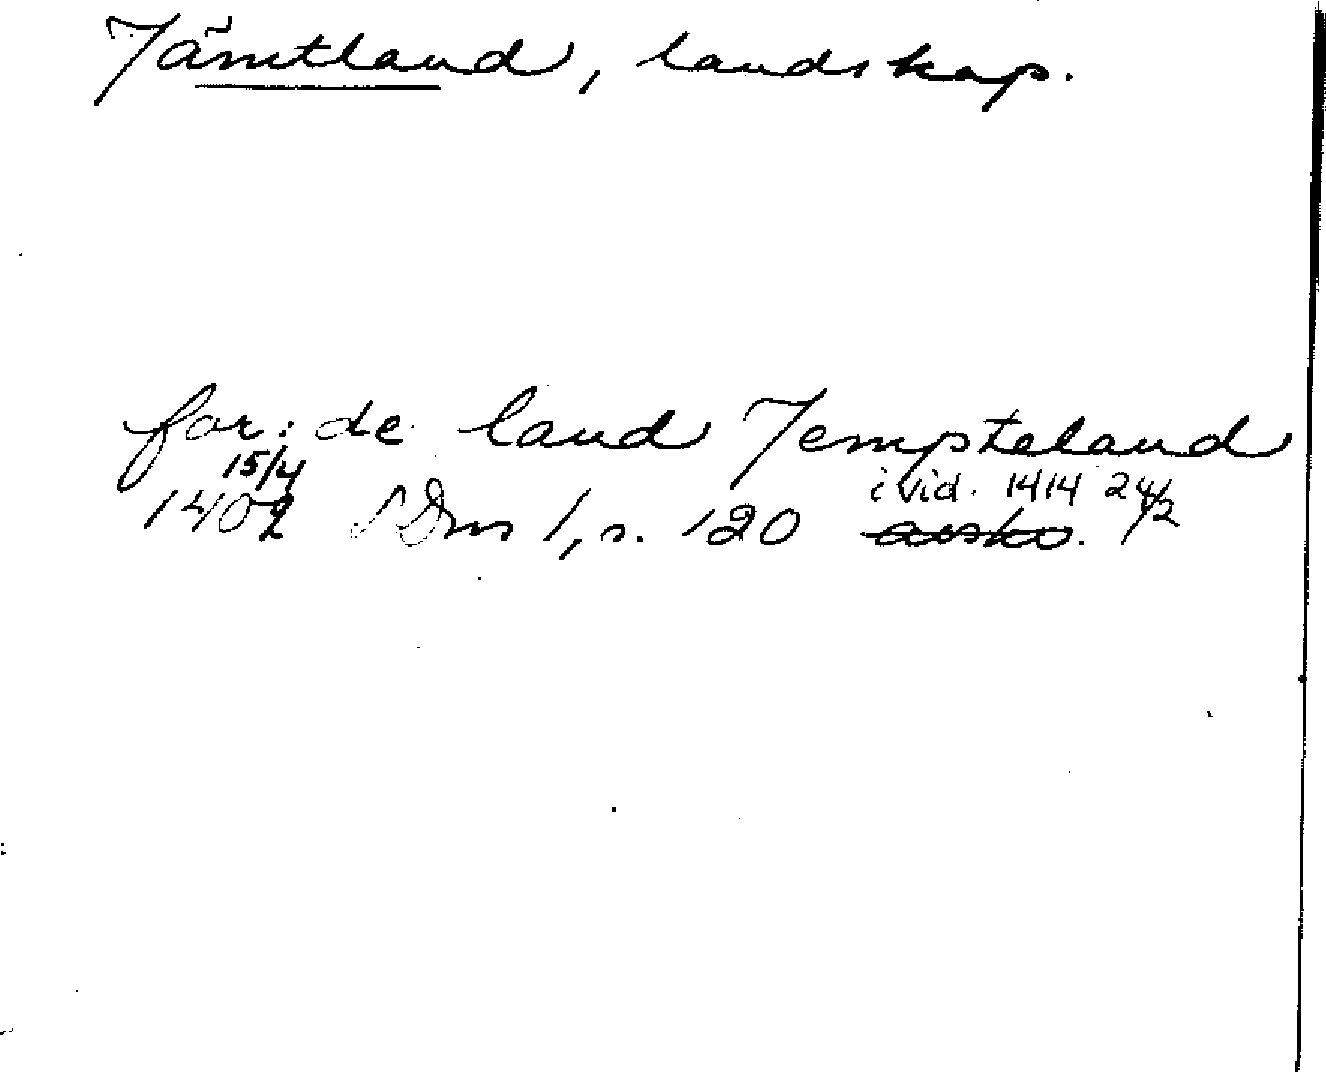 Jämtland, landskap.
for: de land Jempteland
15/4 i vid. 1414 24/2
1402 SDns 1, s. 120 avskr.